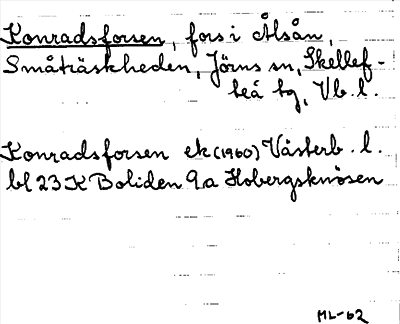 Konradsforsen, fors i Ålsån,
Småträskheden, Jörns sn, Skellef-
teå tg, Vb. l.
Konradsforsen ek (1960) Västerb. l.
bl 23 K Boliden 9a Hobergsknösen
ML-62